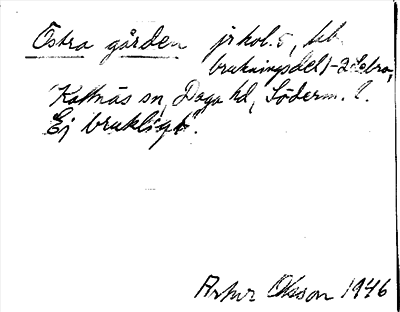 Östra gården jrkol. 5, bebr.
brukningsdel i Ådebro,
Kattnäs sn, Daga hd, Söderm. l.
"Ej brukligt".
Artur Olsson 1946